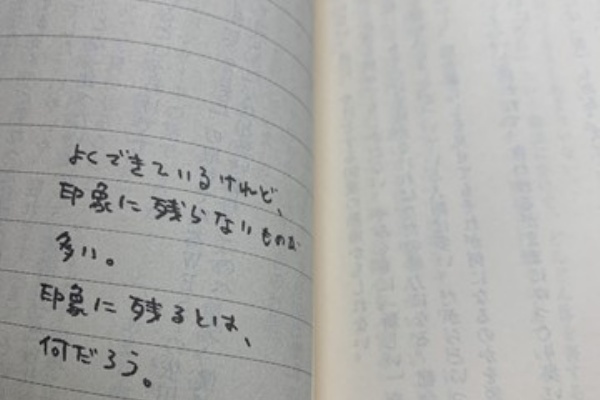 よくできているけれど、
印象に残らないものが
多い。
印象に残るとは、
何だろう。